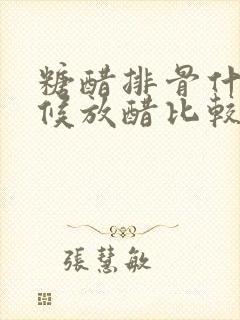 糖醋排骨什
候放醋比較
張慧敏